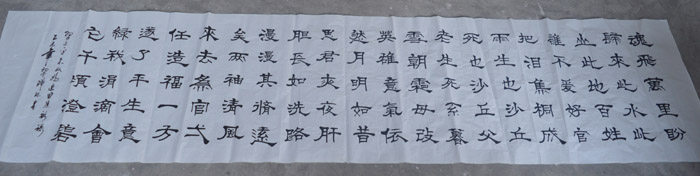 魂飛萬里盼
歸來此水此
山此地百姓
誰不愛好官
把泪焦桐成
雨生也沙丘
死也沙丘父
老生死系暮
雪朝霜毋改
英雄意氣依
然月明如昔
思君夜夜肝
胆長如洗路
漫漫其脩遠
矣兩袖清風
來去為官弌
任造福一方
遂了平生意
綠我涓滴會
它千頃澄碧